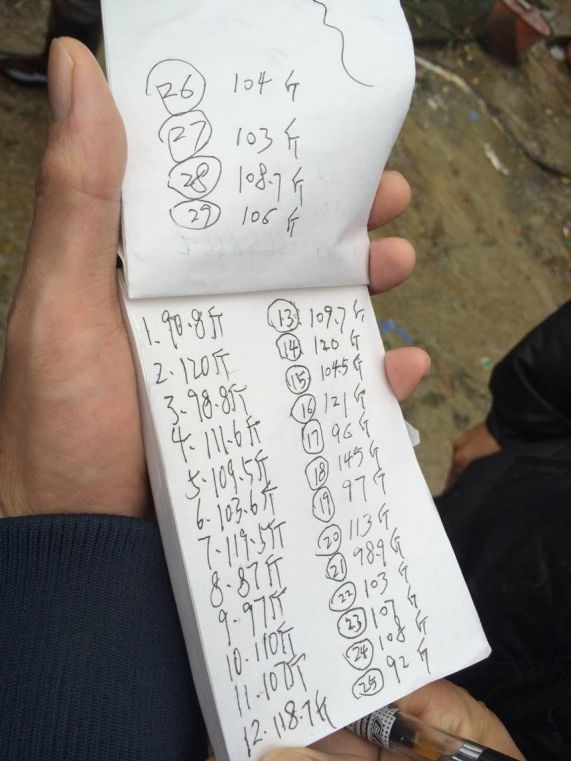 26 104斤
27 103斤
28 108.7斤
29 106斤
1.90.8斤
2.120斤
3.98.8斤
4.111.6斤
5.109.5斤
6.103.6斤
7.119.5斤
8.87斤
9.97斤
10.110斤
11.107斤
12.118.7斤
13 109.7斤
14 120斤
15 104.5斤
16 121斤
17 96斤
18 145斤
19 97斤
20 113斤
21 98.9斤
22 103斤
23 107斤
24 108斤
25 92斤